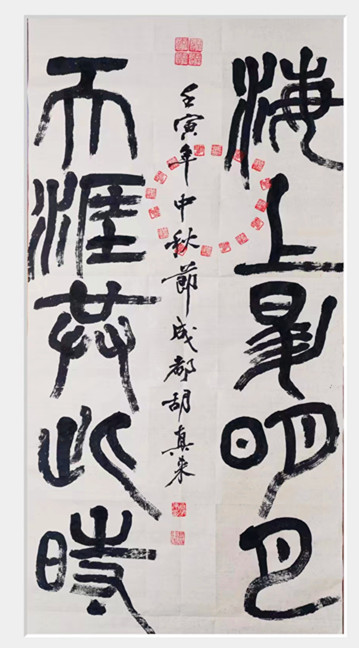 海上昇明月
天涯共此時
壬寅年中秋節成都胡真来